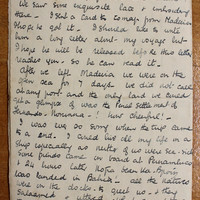 We saw some exquisite lace & embroidery
there. I sent a card to from Madeira
I hope he got it. I should like to write
him a long letter about my voyage but
I hope he will be released before this letter
reaches you. So he can read it.
After we left Madeira we were on the
open sea for 7 days. We did not call
at any port and the only land we saw
a glimpse of was the Penal settlement of
Fernando - Noronha - ! How cheerful! -
I was very sorry when the trip came
to a end. I could live all my life on a
ship especially as neither of us were sea-sick
Some friends came on board at Pernambuco
& 24 hours later
was landed in Bahia - all the natives
were on the docks to greet us - & they